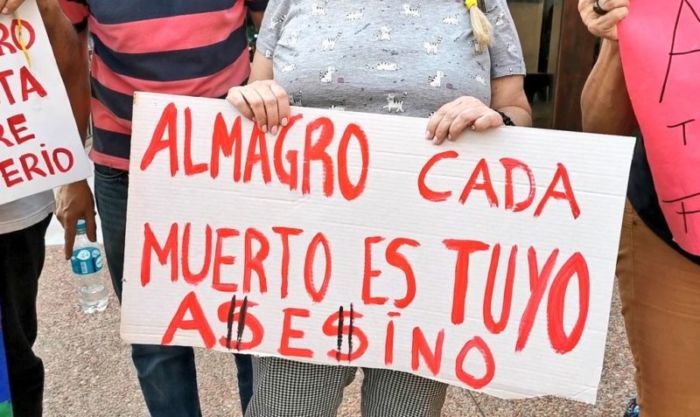 RO
STA
RE
ERIO
ALMAGRO CADA
MUERTO ES TUYO
A$E$INO
A
T
F